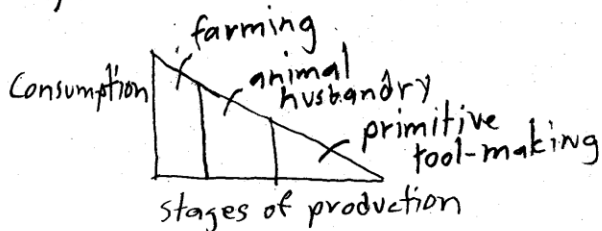 farming
Consumption
animal
husbandry
primitive
tool-making
stages of production